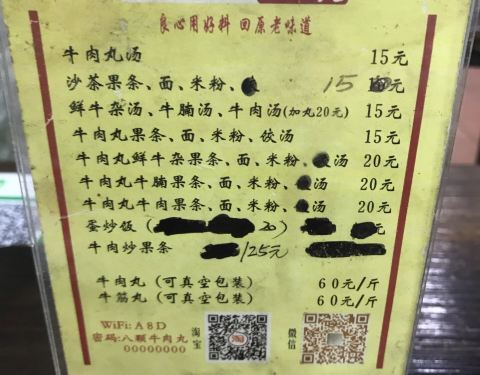 良心用好料 回原老味道
牛肉丸汤 15元
沙茶果条、面、米粉、 15 元
鲜牛杂汤、牛腩汤、牛肉汤(加丸20元) 15元
牛肉丸果条、面、米粉、饺汤 15元
牛肉丸鲜牛杂果条、面、米粉、汤 20元
牛肉丸牛腩果条、面、米粉、汤 20元
牛肉丸牛肉果条、面、米粉、汤 20元
蛋炒饭 ( 20) 元
牛肉炒果条 /25元
牛肉丸 (可真空包装) 60元/斤
牛筋丸 (可真空包装) 60元/斤
WiFi: A8D
密码:八颗牛肉丸
00000000
淘宝
微信